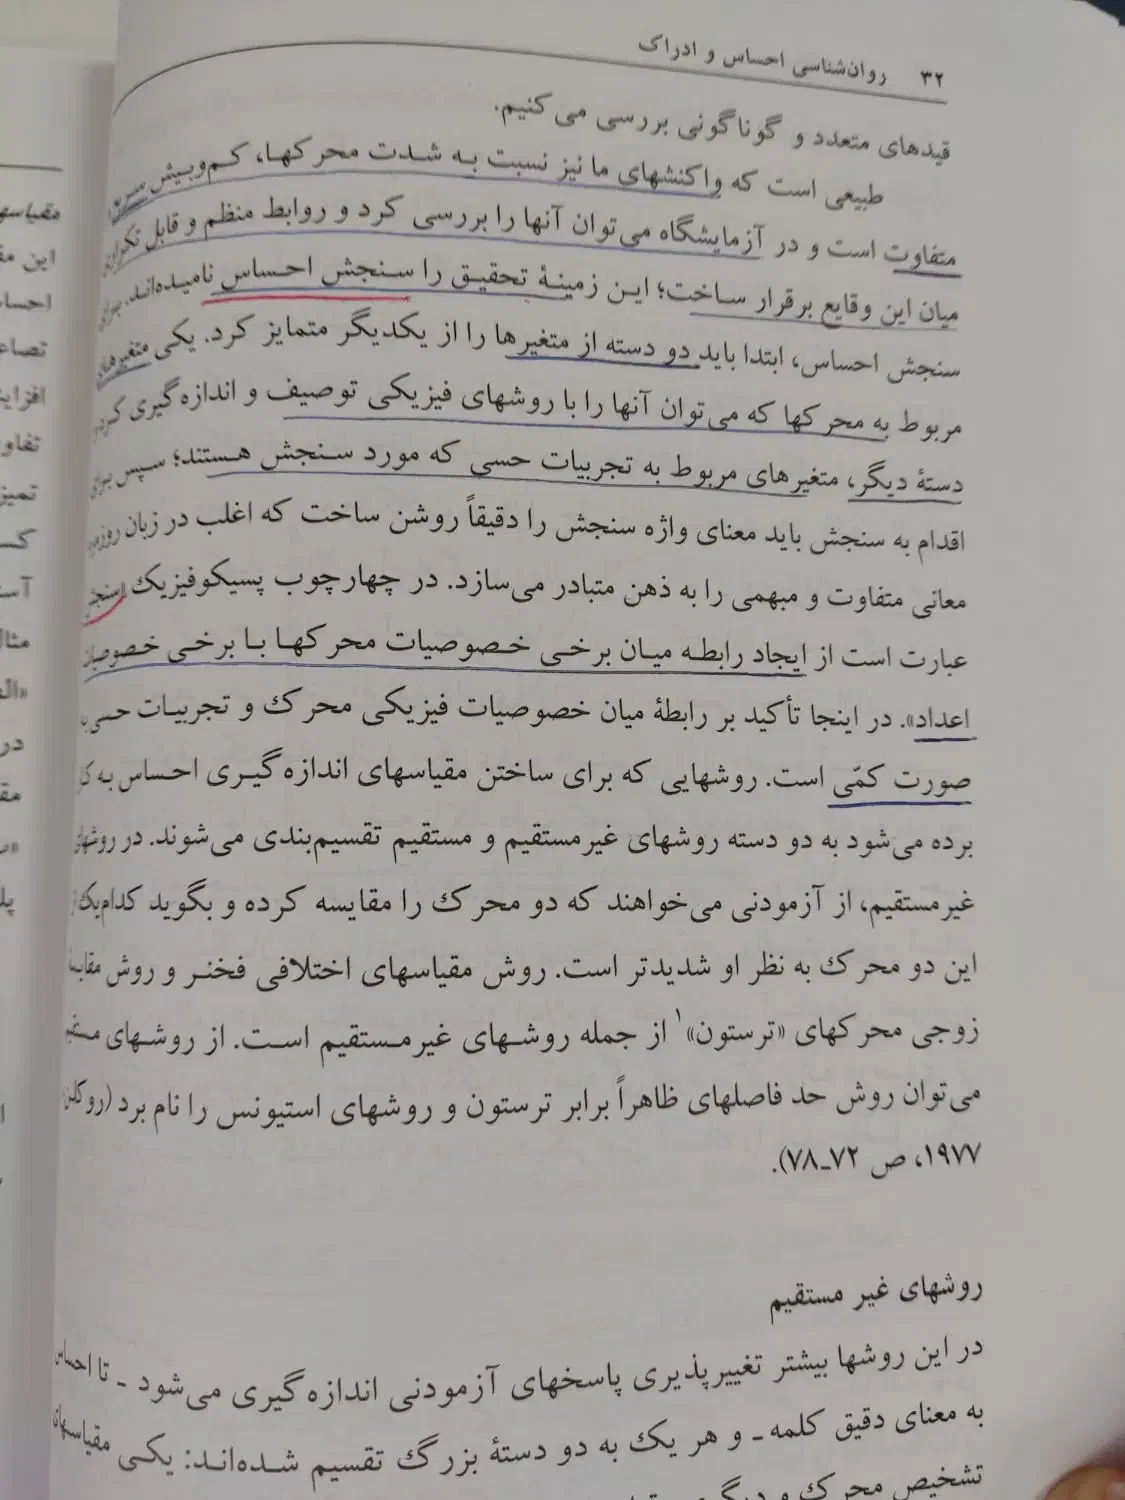 ۳۲ روان‌شناسی احساس و ادراک
قیدهای متعدد و گوناگونی بررسی می‌کنیم.
طبیعی است که واکنشهای ما نیز نسبت به شدت محرکها، کم‌وبیش
متفاوت است و در آزمایشگاه می‌توان آنها را بررسی کرد و روابط منظم و قابل
میان این وقایع برقرار ساخت؛ این زمینهٔ تحقیق را سنجش احساس نامیده‌اند. برای
سنجش احساس، ابتدا باید دو دسته از متغیرها را از یکدیگر متمایز کرد. یکی متغیرهای
مربوط به محرکها که می‌توان آنها را با روشهای فیزیکی توصیف و اندازه‌گیری
دستهٔ دیگر، متغیرهای مربوط به تجربیات حسی که مورد سنجش هستند؛ سپس برای
اقدام به سنجش باید معنای واژه سنجش را دقیقاً روشن ساخت که اغلب در زبان
معانی متفاوت و مبهمی را به ذهن متبادر می‌سازد. در چهارچوب پسیکوفیزیک
عبارت است از ایجاد رابطه میان برخی خصوصیات محرکها با برخی
اعداد». در اینجا تأکید بر رابطهٔ میان خصوصیات فیزیکی محرک و تجربیات
صورت کمّی است. روشهایی که برای ساختن مقیاسهای اندازه‌گیری احساس به
برده می‌شود به دو دسته روشهای غیرمستقیم و مستقیم تقسیم‌بندی می‌شوند. در
غیرمستقیم، از آزمودنی می‌خواهند که دو محرک را مقایسه کرده و بگوید کدام‌یک
این دو محرک به نظر او شدیدتر است. روش مقیاسهای اختلافی فخنر و روش
زوجی محرکهای «ترستون»۱ از جمله روشهای غیرمستقیم است. از روشهای
می‌توان روش حد فاصلهای ظاهراً برابر ترستون و روشهای استیونس را نام برد
۱۹۷۷، ص ۷۲ـ۷۸).
روشهای غیر مستقیم
در این روشها بیشتر تغییرپذیری پاسخهای آزمودنی اندازه‌گیری می‌شود ـ تا احساس
به معنای دقیق کلمه ـ و هر یک به دو دستهٔ بزرگ تقسیم شده‌اند: یکی مقیاسهای
تشخیص محرک و
این
تصاعد
مثال
در